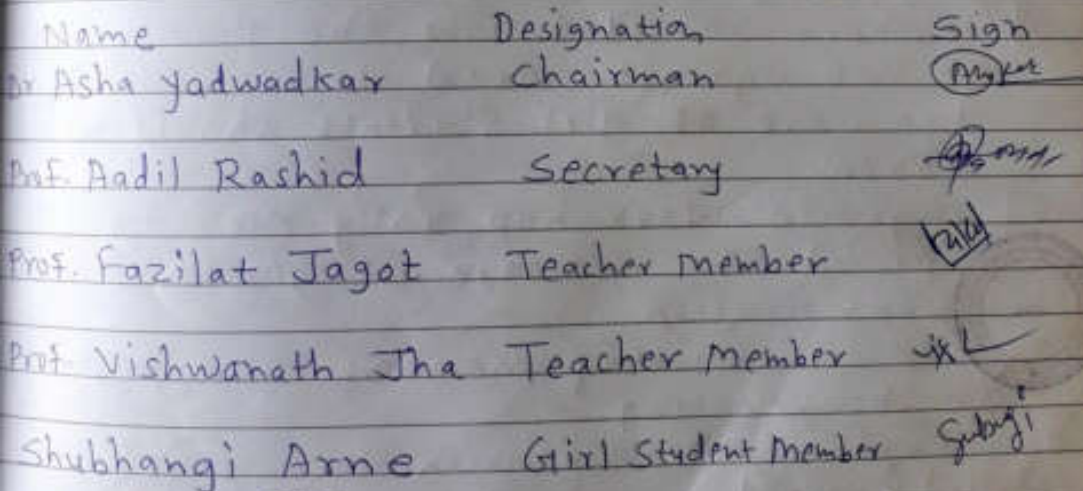 Name Designation Sign
Dr Asha Yadwadkar Chairman
Prof. Aadil Rashid Secretary
Prof. Fazilat Jagot Teacher member
Prof. Vishwanath Jha Teacher Member
Shubhangi Arne Girl Student Member